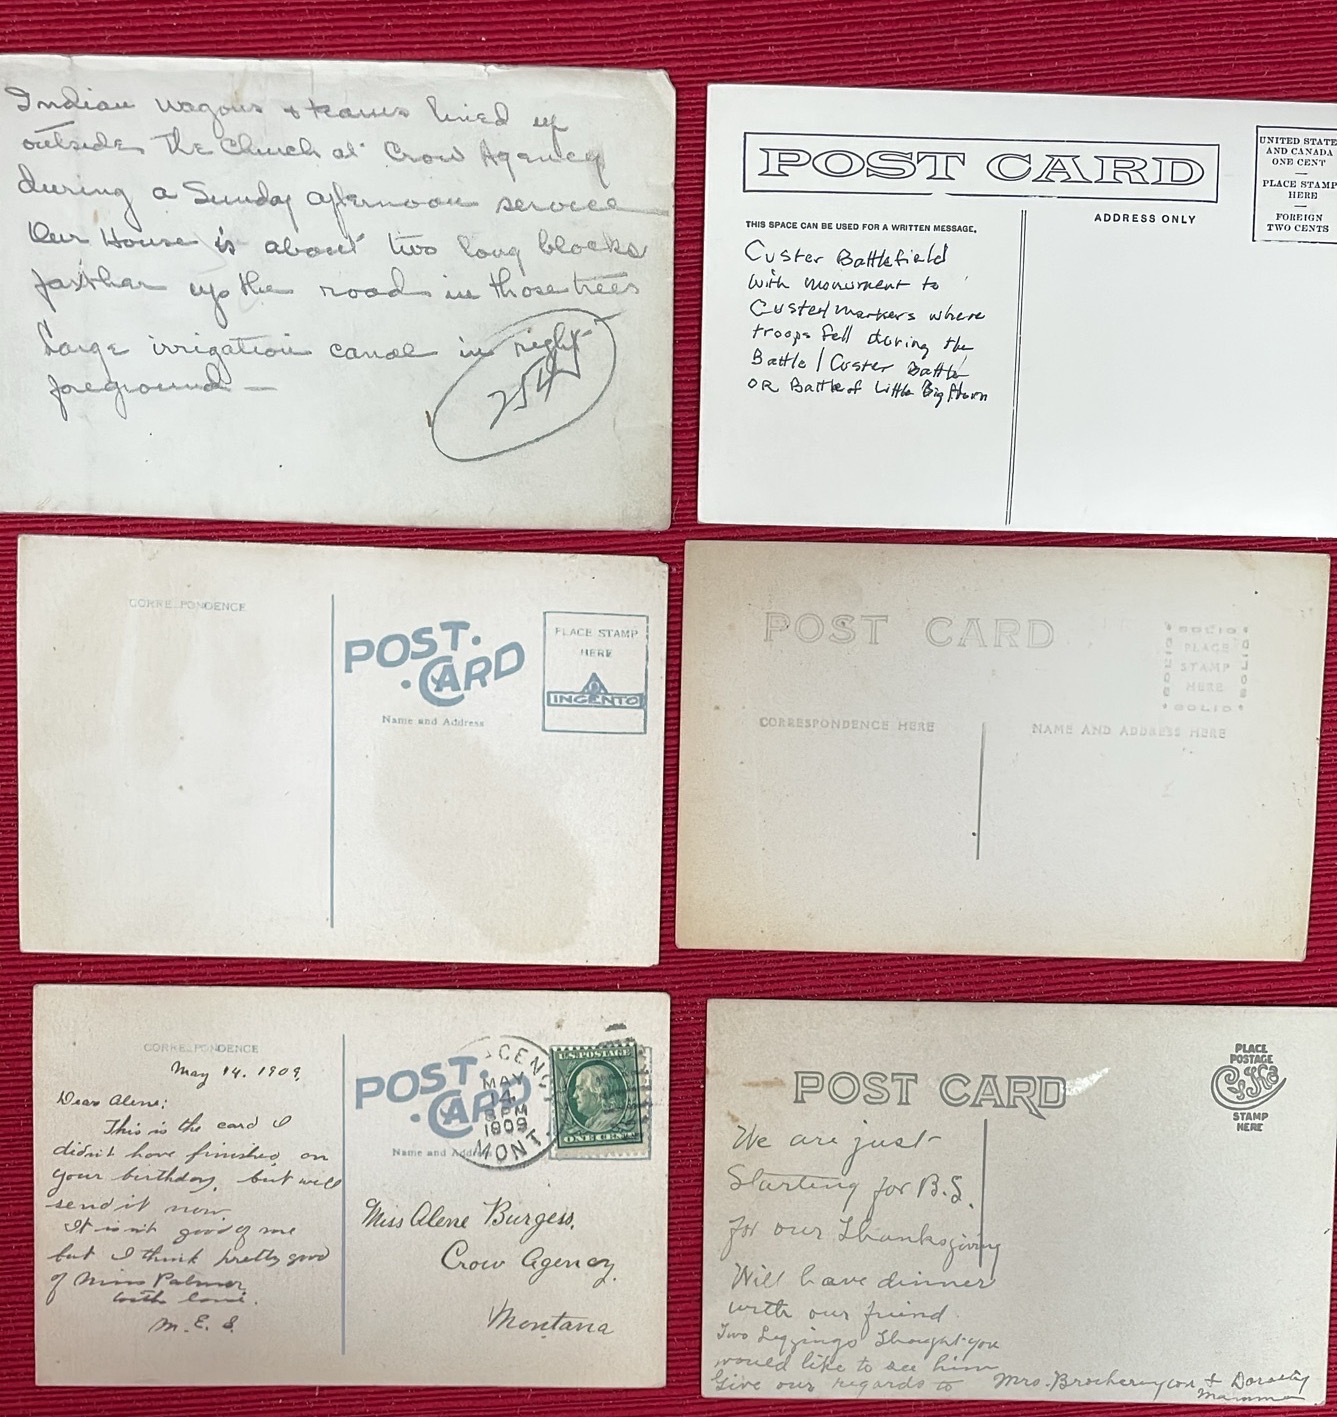 Indian wagons & teams lined up
outside the Church at Crow Agency
during a Sunday afternoon service
Our House is about two long blocks
farther up the road in those trees
Large irrigation canal in right
foreground —
254
POST CARD
UNITED STATE
AND CANADA
ONE CENT
PLACE STAMP
HERE
FOREIGN
TWO CENTS
THIS SPACE CAN BE USED FOR A WRITTEN MESSAGE.
ADDRESS ONLY
Custer Battlefield
with monument to
Custer/markers where
troops fell during the
Battle / Custer Battle
OR Battle of Little Big Horn
CORRESPONDENCE
POST CARD
Name and Address
PLACE STAMP
HERE
INGENTO
POST CARD
SOLIO
PLACE
STAMP
HERE
SOLIO
CORRESPONDENCE HERE
NAME AND ADDRESS HERE
CORRESPONDENCE
May 14. 1909.
Dear Alene;
This is the card I
didn't have finished on
your birthday, but will
send it now.
It isn't good of me
but I think pretty good
of Miss Palmer.
with love.
M. E. S.
POST CARD
Name and Address
GENC
MAY
14
8 PM
1909
MONT.
U.S. POSTAGE
ONE CENT
Miss Alene Burgess,
Crow Agency,
Montana
POST CARD
PLACE
POSTAGE
CYKO
STAMP
HERE
We are just
Starting for B.S.
for our Thanksgiving
Will have dinner
with our friend
Two Leggings Thought you
would like to see him
Give our regards to Mrs. & Dorothy
Mamma